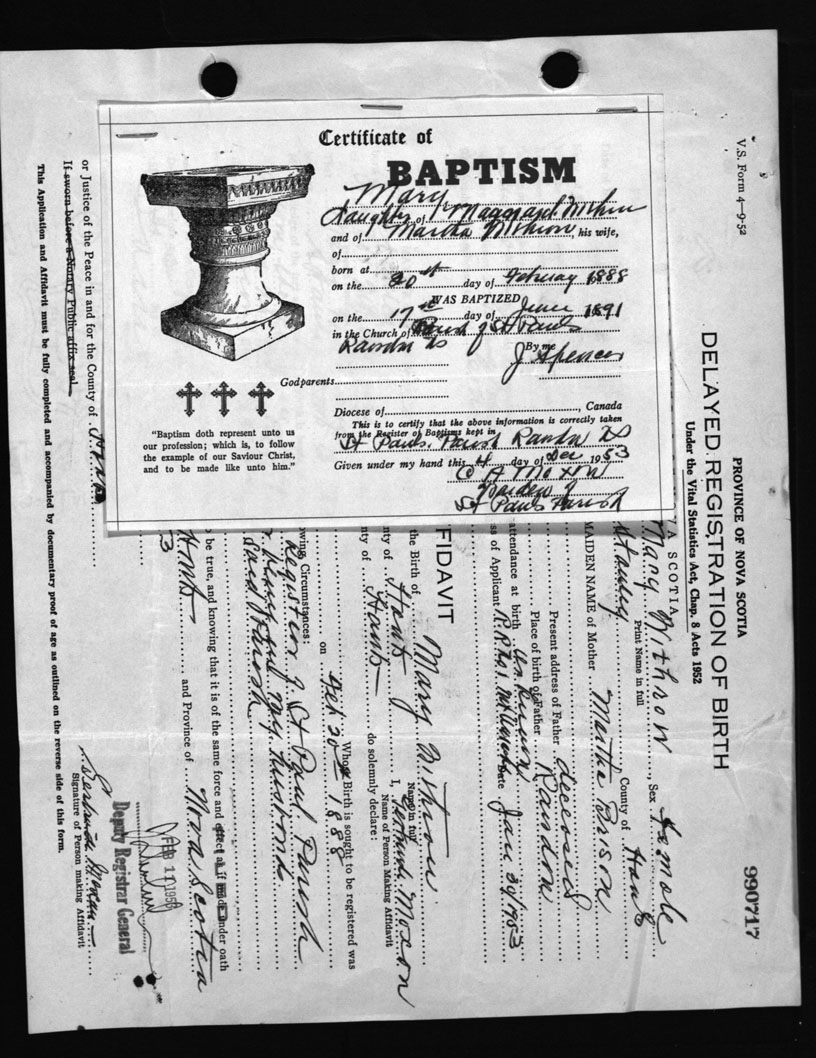 Certificate of
BAPTISM
Mary
Daughter of Maynard Withrow
and of Martha Withrow, his wife,
of
born at
on the 20th day of February 1888
WAS BAPTIZED
on the 17th day of June 1891
in the Church of Parish of St Pauls
Rawdon NS
By me
J Spencer
Godparents
Diocese of , Canada
This is to certify that the above information is correctly taken
from the Register of Baptisms kept in
St Pauls Parish Rawdon NS
Given under my hand this 4 day of Dec 1953
A Moxon
Warden of
St Pauls Parish
"Baptism doth represent unto us
our profession; which is, to follow
the example of our Saviour Christ,
and to be made like unto him."
V.S. Form 4—9-52
990717
PROVINCE OF NOVA SCOTIA
DELAYED REGISTRATION OF BIRTH
Under the Vital Statistics Act, Chap. 8 Acts 1952
SCOTIA
Mary Withrow, Sex Female
Print Name in full
County of Hants
MAIDEN NAME of Mother Martha Brison
Present address of Father deceased
Place of birth of Father Rawdon
attendance at birth
ss of Applicant Date Jan 30/1953
FIDAVIT
the Birth of Mary Withrow
Name in full
nty of Hants I, Gertrude Moxon
Name of Person Making Affidavit
nty of Hants do solemnly declare:
Whose Birth is sought to be registered was
on Feb 20th 1888
owing Circumstances:
Register of St Paul Parish
my husband
said Parish
be true, and knowing that it is of the same force and effect as if made under oath
Hants and Province of Nova Scotia
3
or Justice of the Peace in and for the County of
If sworn before a Notary Public affix seal
This Application and Affidavit must be fully completed and accompanied by documentary proof of age as outlined on the reverse side of this form.
FEB 11 195
Deputy Registrar General
Gertrude Moxon
Signature of Person making Affidavit